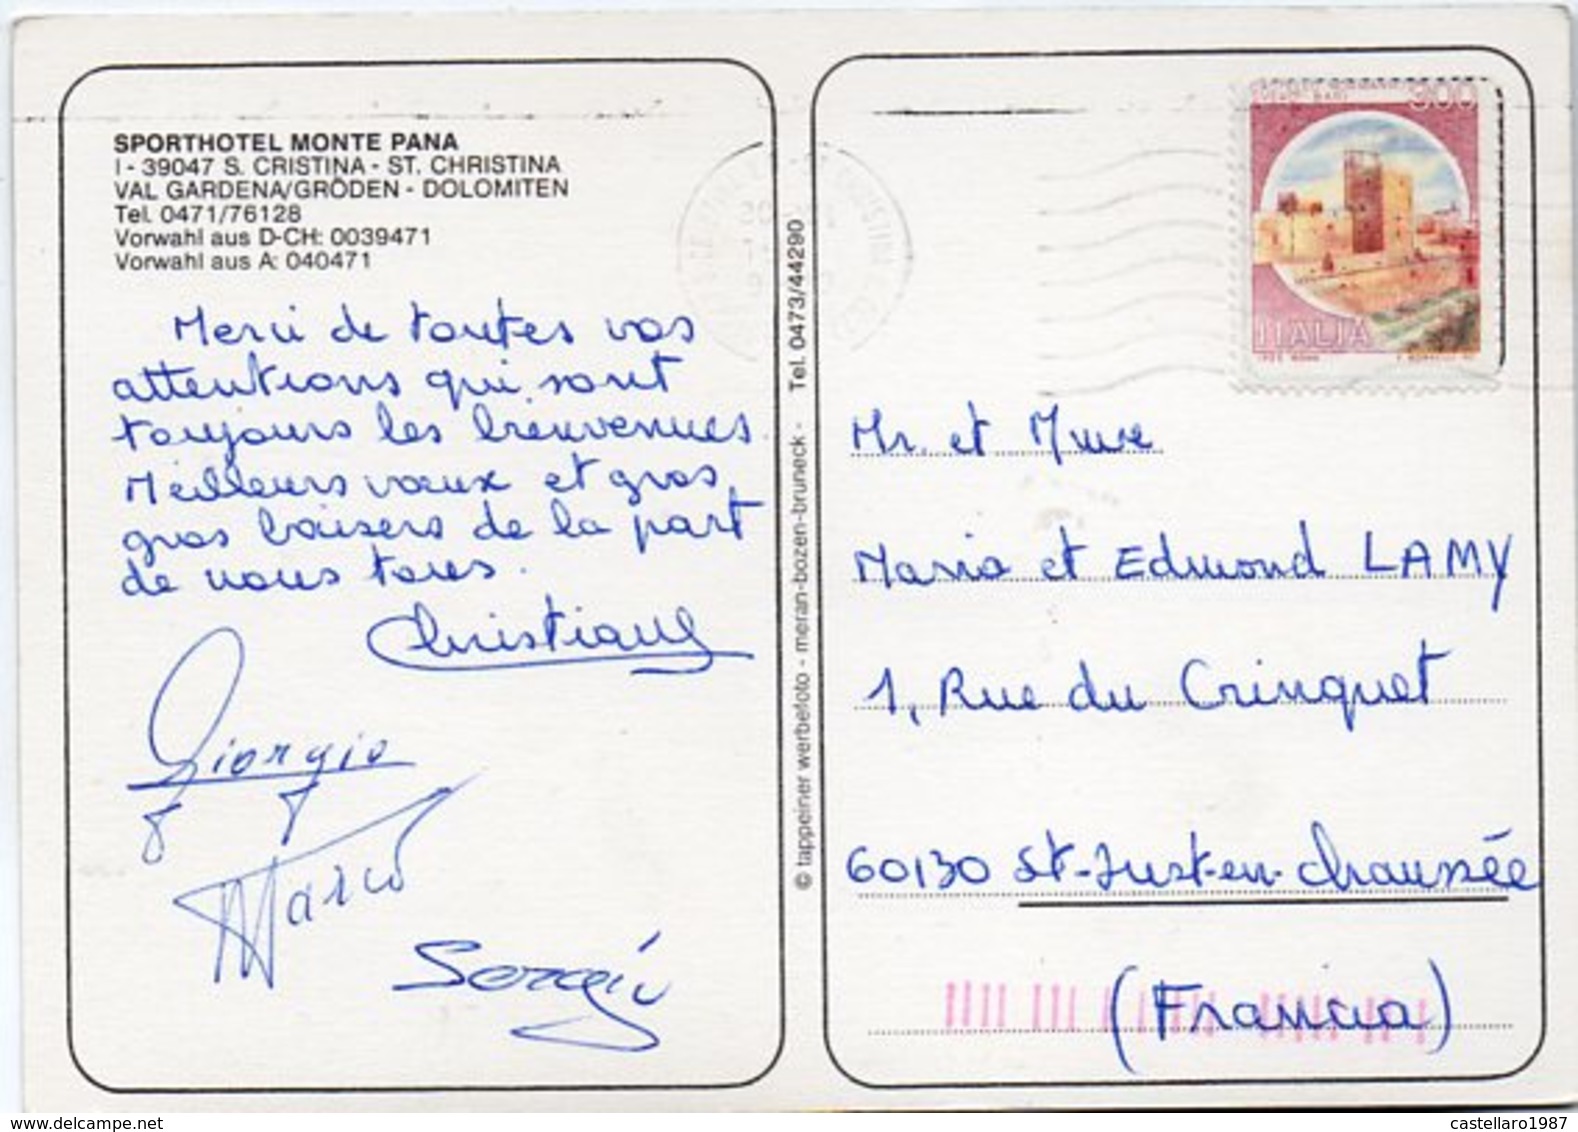 SPORTHOTEL MONTE PANA
I - 39047 S. CRISTINA - ST. CHRISTINA
VAL GARDENA/GRÖDEN - DOLOMITEN
Tel. 0471/76128
Vorwahl aus D-CH: 0039471
Vorwahl aus A: 040471
Merci de toutes vos
attentions qui sont
toujours les bienvenues.
Meilleurs vœux et gros,
gros baisers de la part
de nous tous.
Christiane
Giorgio
Marco
Sergio
© tappeiner werbefoto - meran-bozen-bruneck - Tel. 0473/44290
300
ITALIA
Mr. et Mme
Maria et Edmond LAMY
1, Rue du Crinquet
60130 St-Just-en-Chaussée
(Francia)
www.delcampe.net
castellaro1987